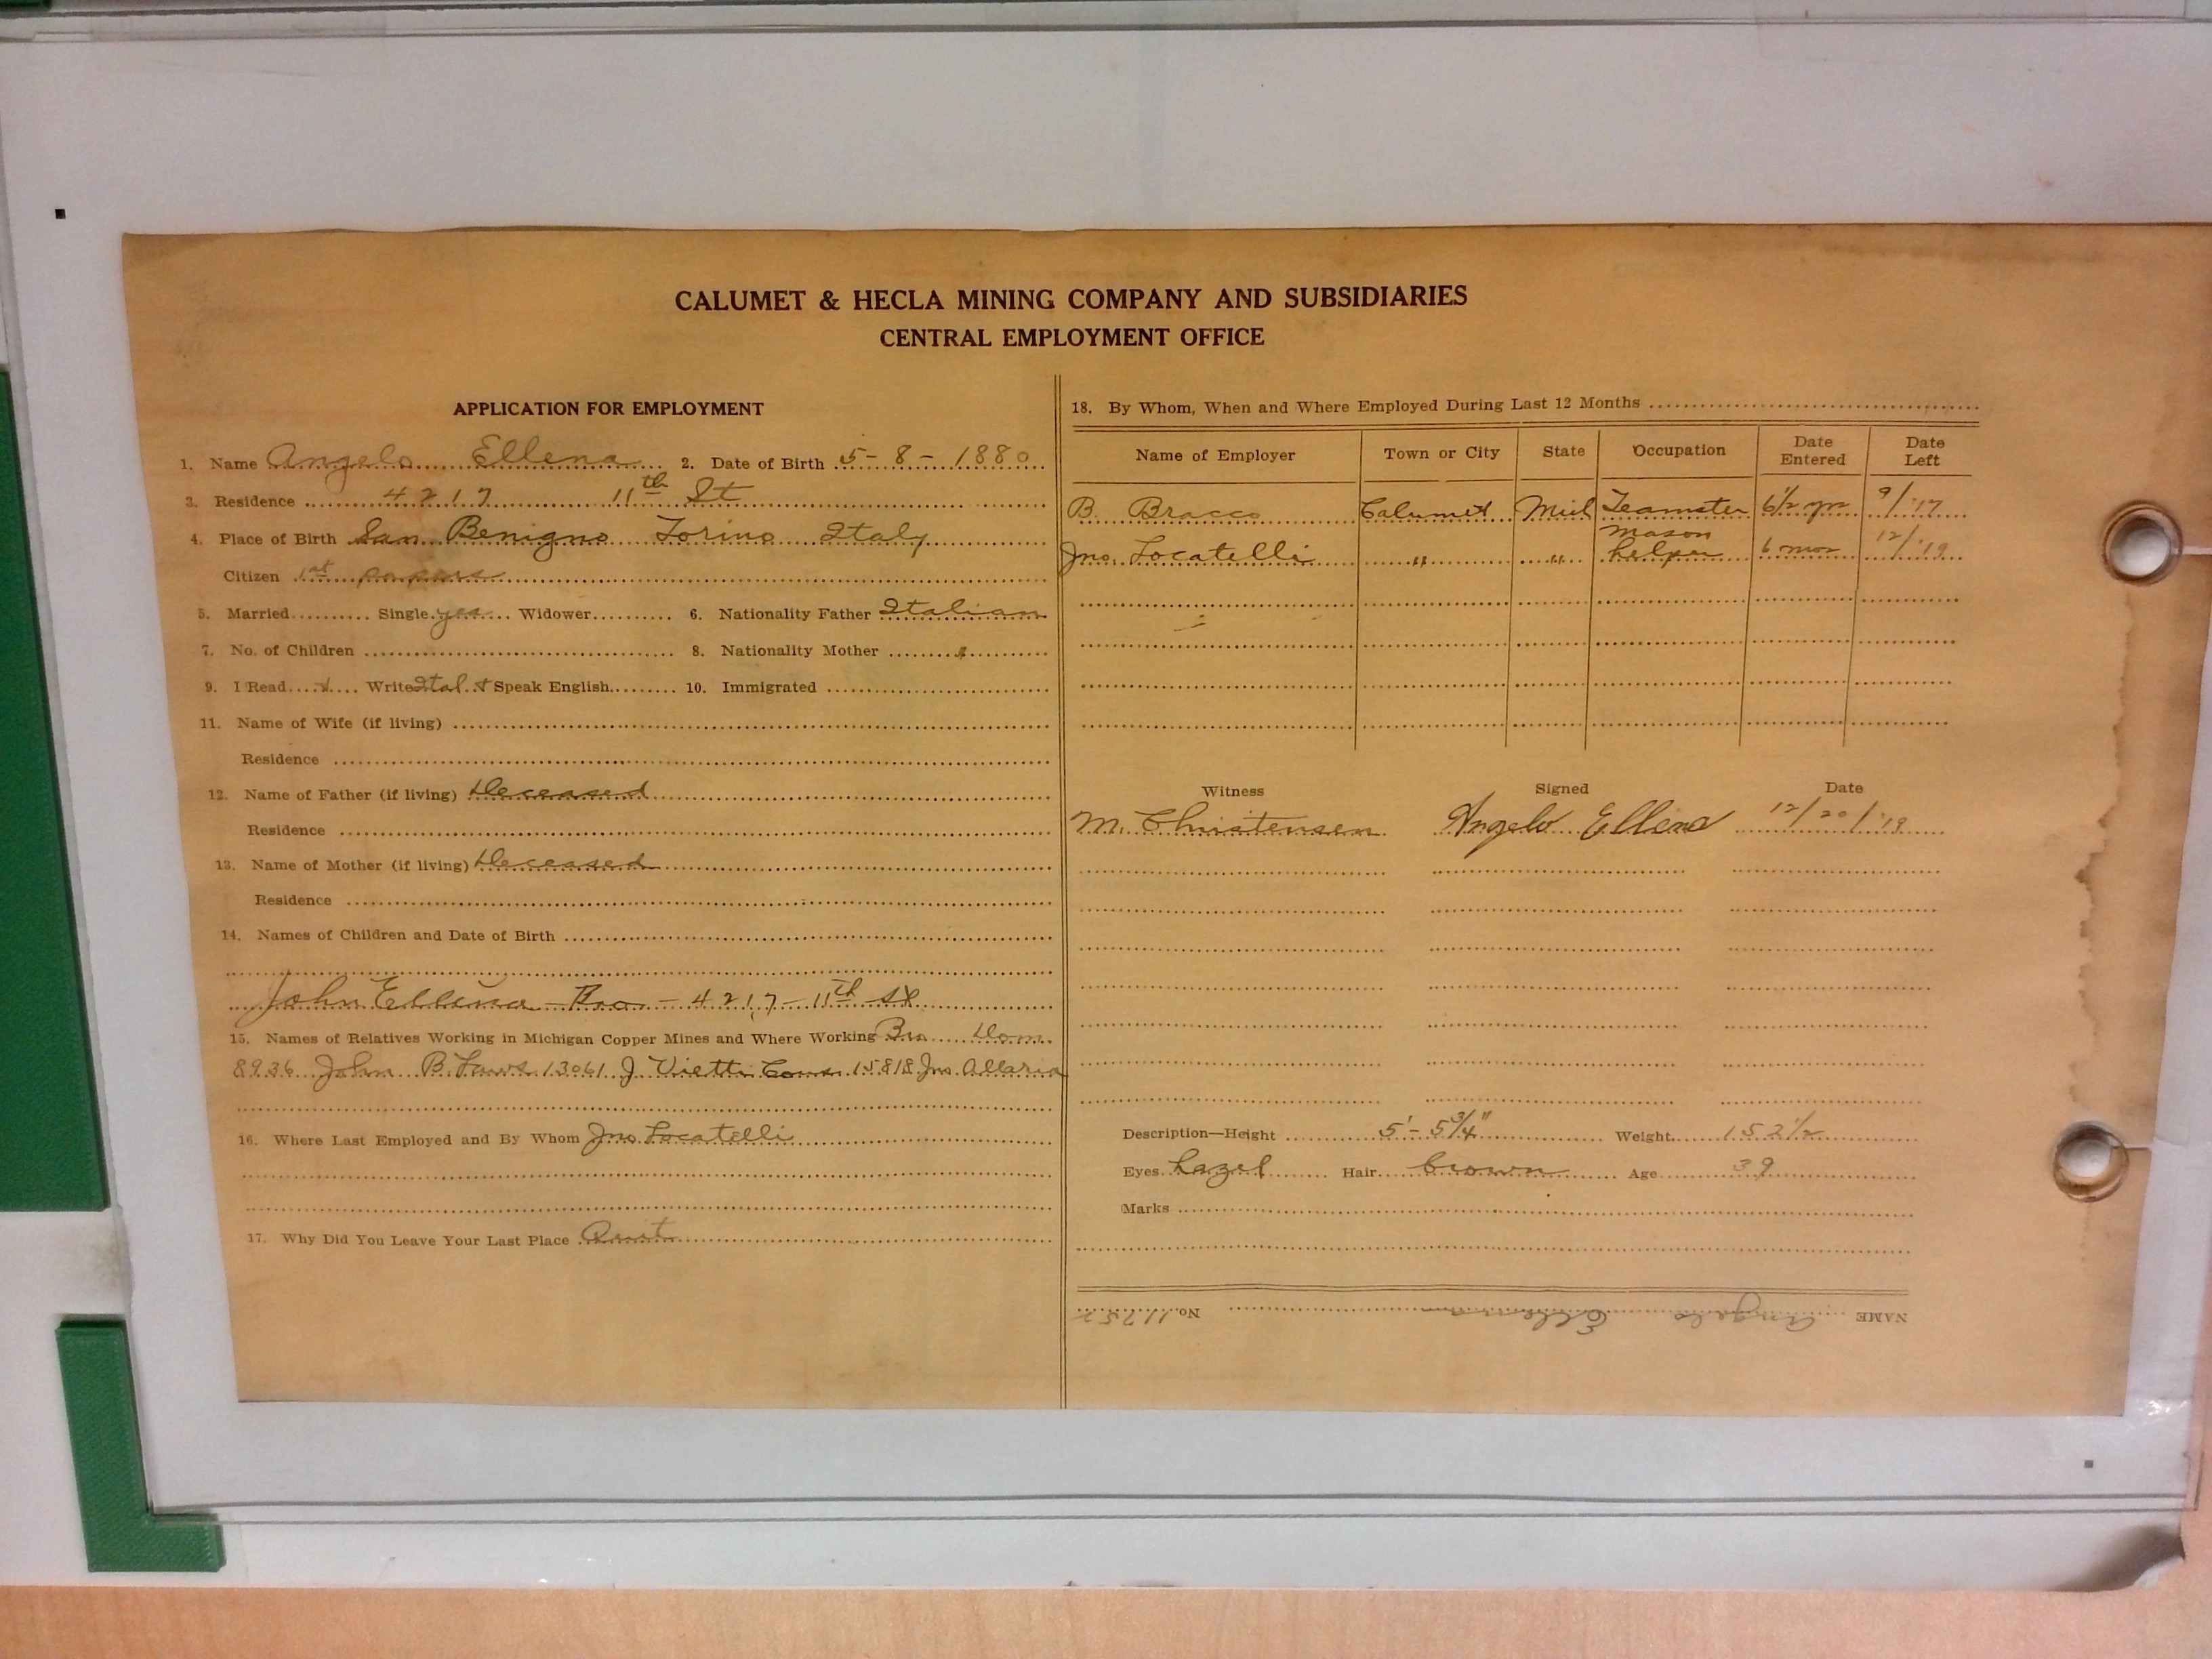 CALUMET & HECLA MINING COMPANY AND SUBSIDIARIES
CENTRAL EMPLOYMENT OFFICE
APPLICATION FOR EMPLOYMENT
1. Name Angelo Ellena 2. Date of Birth 5-8-1880
3. Residence 4217 11th St
4. Place of Birth San Benigno Torino Italy
Citizen 1st papers
5. Married Single yes Widower 6. Nationality Father Italian
7. No. of Children 8. Nationality Mother "
9. I Read Write Ital + Speak English 10. Immigrated
11. Name of Wife (if living)
Residence
12. Name of Father (if living) Deceased
Residence
13. Name of Mother (if living) Deceased
Residence
14. Names of Children and Date of Birth
John Ellena - Bro - 4217 - 11th St
15. Names of Relatives Working in Michigan Copper Mines and Where Working Bro Dom.
8936 John B. 13061 J. Vietti 15818 Jno. Allaria
16. Where Last Employed and By Whom Jno Locatelli
17. Why Did You Leave Your Last Place Quit
18. By Whom, When and Where Employed During Last 12 Months
Name of Employer Town or City State Occupation Date Entered Date Left
B. Bracco Calumet Mich Teamster 6½ yrs 9/'17
Jno. Locatelli " " Mason helper 6 mos 12/'19
Witness Signed Date
M. Christensen Angelo Ellena 12/20/'19
Description—Height 5'-5¾" Weight 152½
Eyes hazel Hair brown Age 39
Marks
NAME Angelo Ellena No. 11752